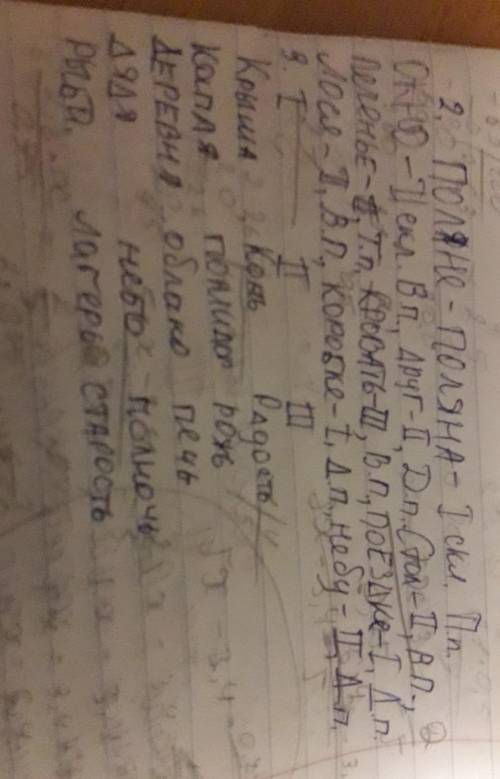 2. Поляне - Поляна - I скл. П.п.
Окно - II скл. В.п., друг - II, Д.п. Стол - II, В.п.,
печенье - II, Т.п., кровать - III, В.п., поездке - I, Д.п.
Лося - II, В.п., коробке - I, Д.п., небу - II, Д.п.
3. I II III
Крыша Конь Радость
Капля помидор рожь
Деревня облако печь
Дядя небо полночь
Рыба. лагерь старость